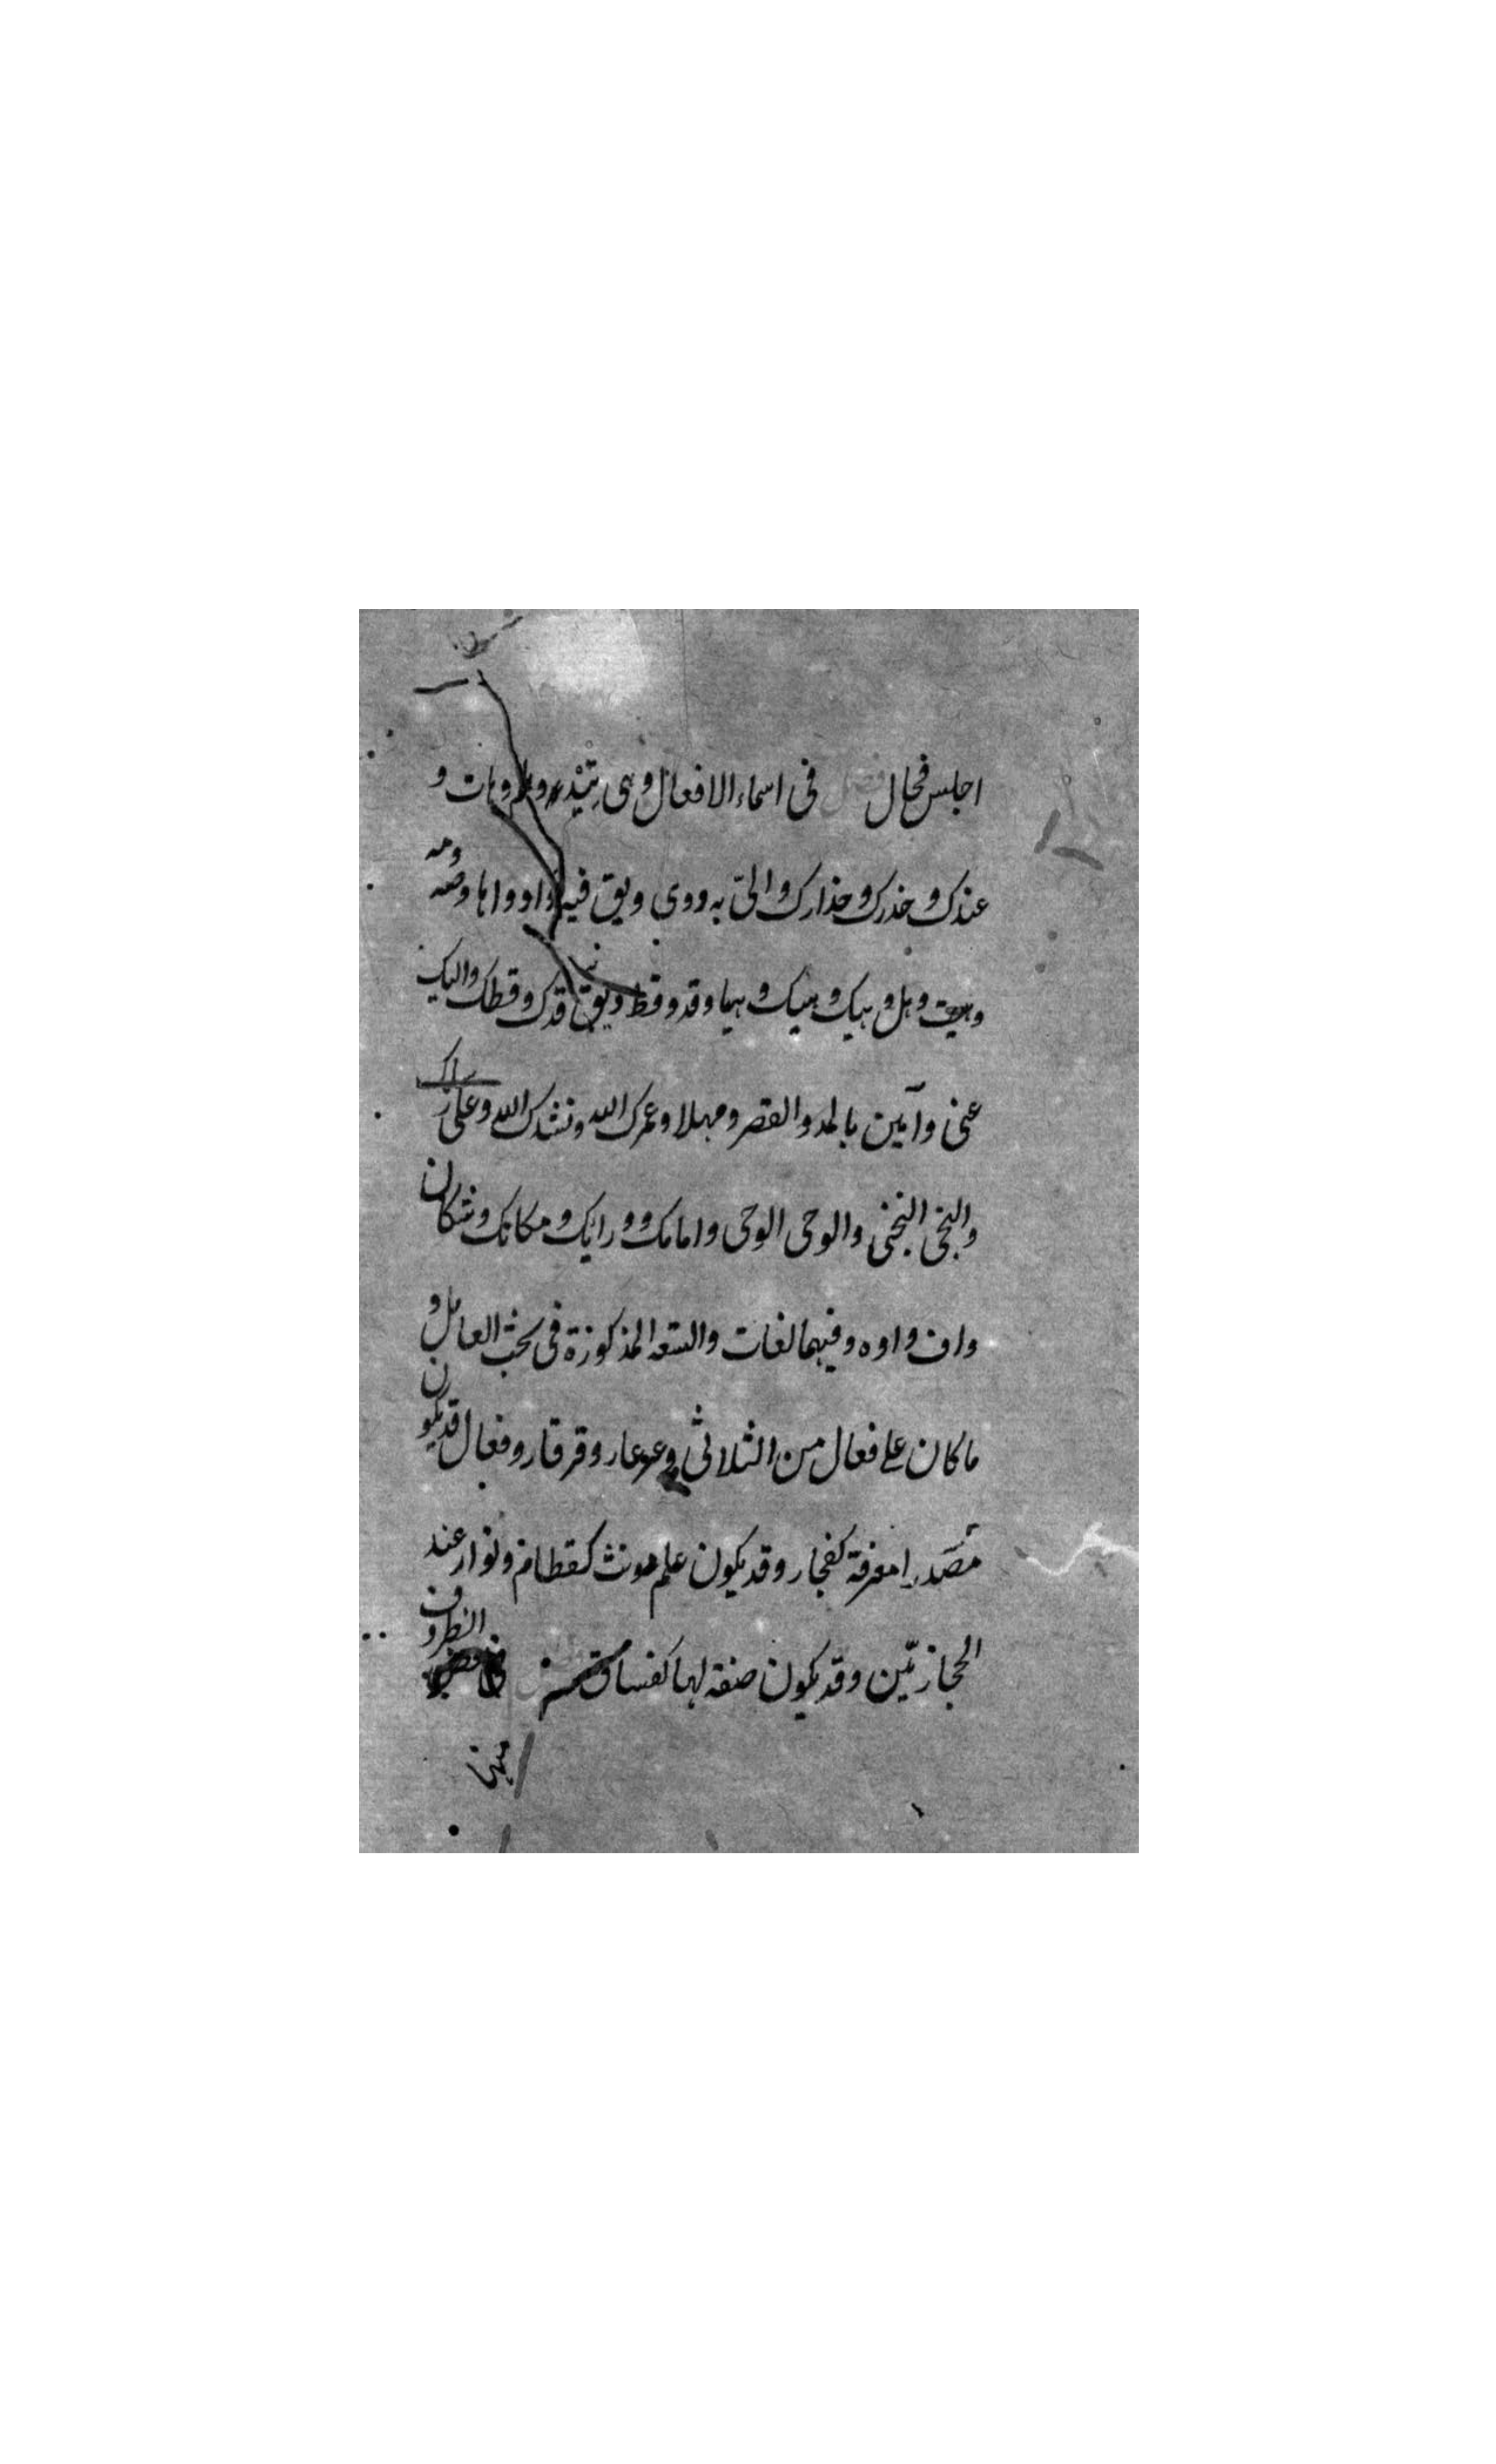 اجلس فحال فصل فى اسماء الافعال وهى تيد وهلم وهات و
عندك و حذرك و حذارك و الىّ به و وى ويق فيه واو واها وصه ومه
وهيت و هل و هيك و هيك و هيا وقد وقط ويق فيها قدك وقطك واليك
عنى وآمين بالمد والقصر ومهلا وعمرك الله ونشدك الله وعلىّ
والنجى النجى والوحى الوحى وامامك و ورايك و مكانك وشكان
واف واوه وفيهما لغات والتسعه المذكورة فى بحث العامل و
ما كان على فعال من الثلاثى وعرعار وقرقار وفعال قد يكون
مصدرا معرفة كفجار وقد يكون علم مونث كقطام ونوار عند
الحجازيّين وقد يكون صفة لها كفساق الظروف
منها